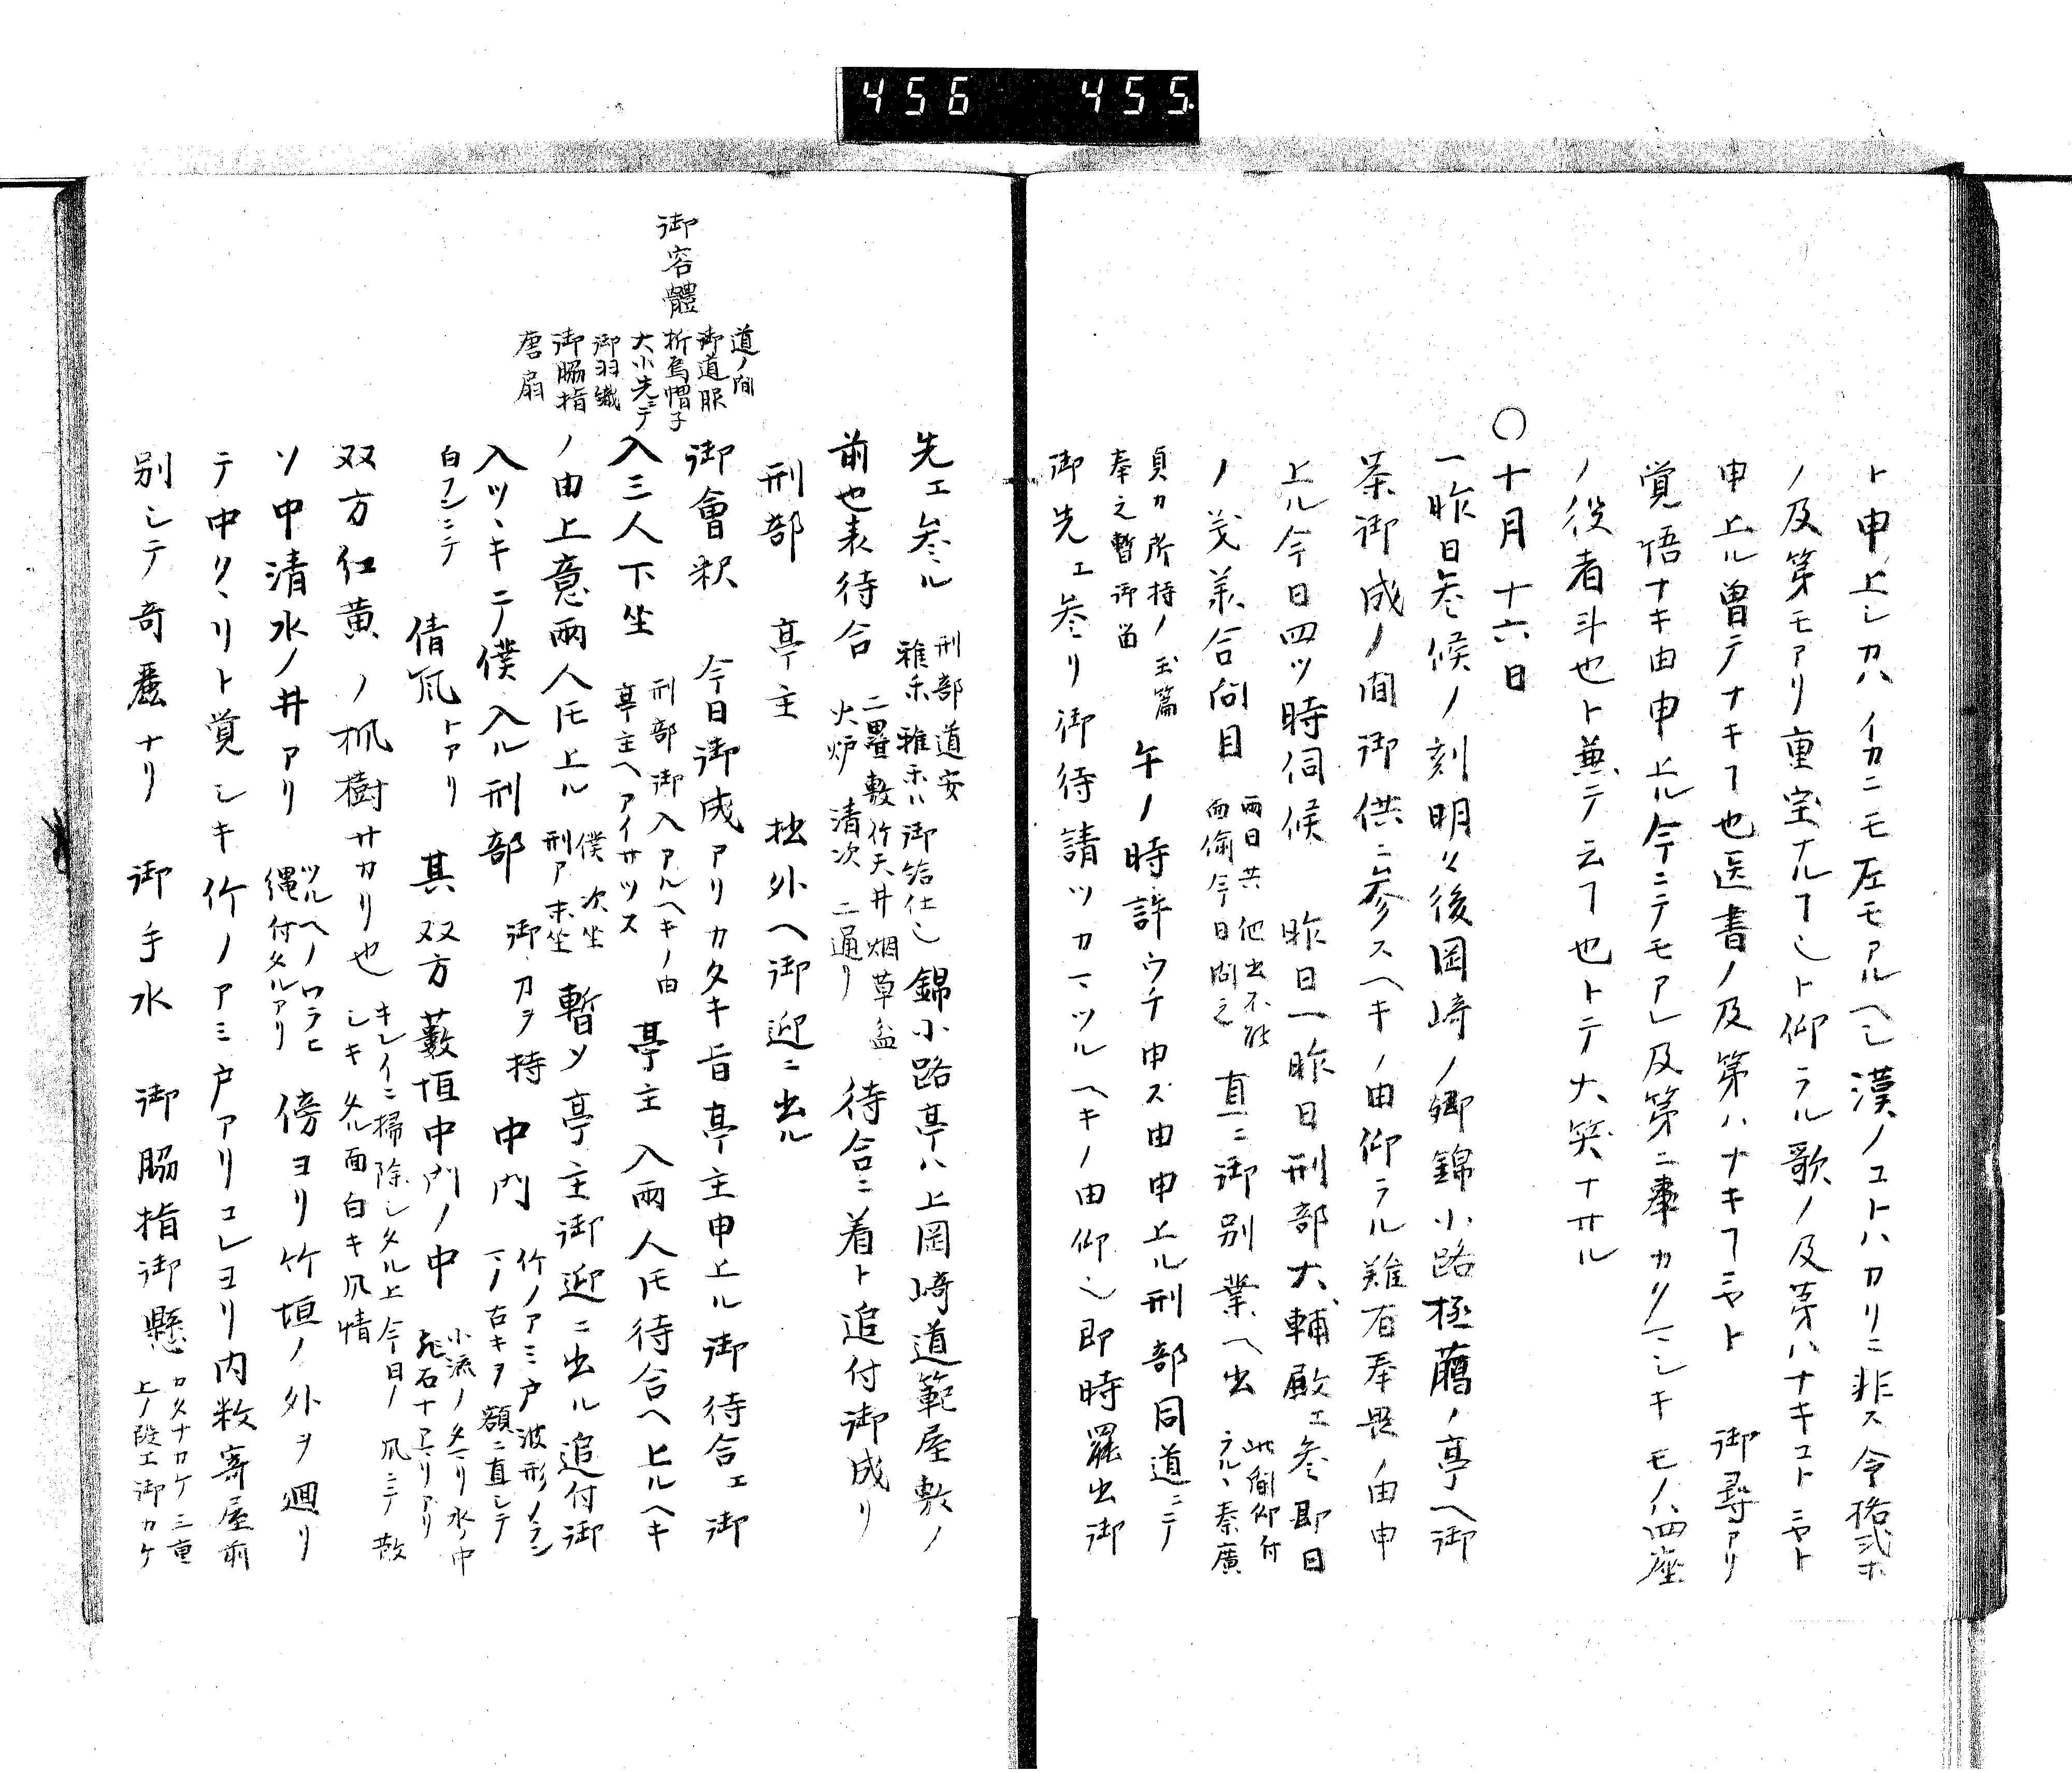 456 455
ト申上シカハイカニモ左モアルヘシ漢ノコトハカリニ非ス令格式ホ
ノ及第モアリ重宝ナルヿシト仰ラル歌ノ及第ハナキコトニヤト
申上ル曽テナキヿ也医書ノ及第ハナキヿニヤト 御尋アリ
覚悟ナキ由申上ル今ニテモアレ及第ニ
モノハ四座
ノ役者斗也ト兼テ云ヿ也トテ大笑ナサル
○十月十六日
一昨日参候ノ刻明々後岡崎ノ郷錦小路極﨟ノ亭ヘ御
茶御成ノ間御供ニ参スヘキノ由仰ラル難有奉畏ノ由申
上ル今日四ツ時伺候 昨日一昨日刑部大輔殿エ参即日
ノ茂兼合伺目
両日共他出不能
今日問之
直ニ御別業ヘ出
此間仰付
ラル、秦廣
貞カ所持ノ玉篇
奉之暫御留
午ノ時許ウチ申ス由申上ル刑部同道ニテ
御先エ参リ御待請ツカマツルヘキノ由仰シ即時罷出御
先エ参ル
刑部道安
雅禾雅禾ハ御給仕シ
錦小路亭ハ上岡崎道範屋敷ノ
前也表待合
二畳敷竹天井烟草盆
火炉 清次 二通リ
待合ニ着ト追付御成リ
刑部 亭主 枩外ヘ御迎ニ出ル
御容體
道ノ間
御道服
折烏帽子
大小先ニテ
御羽織
御脇指
唐扇
御會釈 今日御成アリカタキ旨亭主申上ル御待合エ御
入三人下坐
刑部御入アルヘキノ由
亭主ヘアイサツス
亭主入両人𪜈待合ヘ上ルヘキ
ノ由上意両人𪜈上ル
僕次坐
刑ア末坐
暫ソ亭主御迎ニ出ル追付御
入ツヽキテ僕入ル刑部
御刀ヲ持
中門
竹ノアミ戸波形ノラン
マノ古キヲ額ニ直シテ
白フンニテ
倩凬トアリ 其双方藪垣中門ノ中
小流ノタマリ水ノ中
飛石ナトアマリアリ
双方紅黄ノ楓樹サカリ也
キレイニ掃除シタル上今日ノ凬ニテ散
シキタル面白キ凬情
ソ中清水ノ井アリ
ツルヘノワラヒ
縄付タルアリ
傍ヨリ竹垣ノ外ヲ廻リ
テ中クヽリト覚シキ竹ノアミ戸アリコレヨリ内数寄屋前
別シテ竒麗ナリ 御手水 御脇指御懸
カタナカケ二重
上ノ段エ御カケ